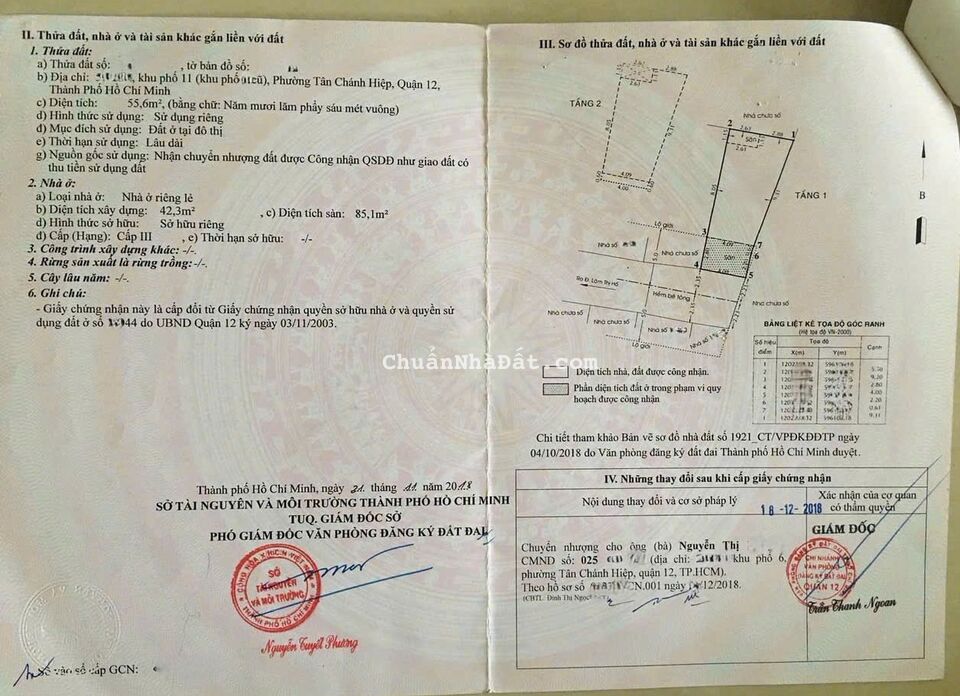 II. Thửa đất, nhà ở và tài sản khác gắn liền với đất
1. Thửa đất:
a) Thửa đất số: , tờ bản đồ số:
b) Địa chỉ: , khu phố 11 (khu phố cũ), Phường Tân Chánh Hiệp, Quận 12,
Thành Phố Hồ Chí Minh
c) Diện tích: 55,6m², (bằng chữ: Năm mươi lăm phẩy sáu mét vuông)
d) Hình thức sử dụng: Sử dụng riêng
đ) Mục đích sử dụng: Đất ở tại đô thị
e) Thời hạn sử dụng: Lâu dài
g) Nguồn gốc sử dụng: Nhận chuyển nhượng đất được Công nhận QSDĐ như giao đất có
thu tiền sử dụng đất
2. Nhà ở:
a) Loại nhà ở: Nhà ở riêng lẻ
b) Diện tích xây dựng: 42,3m² , c) Diện tích sàn: 85,1m²
d) Hình thức sở hữu: Sở hữu riêng
đ) Cấp (Hạng): Cấp III , e) Thời hạn sở hữu: -/-
3. Công trình xây dựng khác: -/-.
4. Rừng sản xuất là rừng trồng: -/-.
5. Cây lâu năm: -/-
6. Ghi chú:
- Giấy chứng nhận này là cấp đổi từ Giấy chứng nhận quyền sở hữu nhà ở và quyền sử
dụng đất ở số do UBND Quận 12 ký ngày 03/11/2003.
Thành phố Hồ Chí Minh, ngày 21 tháng 11 năm 2018
SỞ TÀI NGUYÊN VÀ MÔI TRƯỜNG THÀNH PHỐ HỒ CHÍ MINH
TUQ. GIÁM ĐỐC SỞ
PHÓ GIÁM ĐỐC VĂN PHÒNG ĐĂNG KÝ ĐẤT ĐAI
SỞ
TÀI NGUYÊN
VÀ MÔI TRƯỜNG
Nguyễn Tuyết Phương
Số vào sổ cấp GCN:
III. Sơ đồ thửa đất, nhà ở và tài sản khác gắn liền với đất
TẦNG 2
4.09
4.00
Nhà chưa số
2
1
2.67
Sân
2.61
8.05
9.31
TẦNG 1
B
Lộ giới
Nhà số
Nhà chưa số
3
4.09
7
6
Sân
4
5
Ra Đ. Lâm Thị Hố
Hẻm bê tông
Nhà chưa số
Nhà chưa số
Nhà chưa số
Nhà số
Nhà số
Lộ giới
BẢNG LIỆT KÊ TỌA ĐỘ GÓC RANH
(Hệ tọa độ VN-2000)
Số hiệu điểm Tọa độ Cạnh
X(m) Y(m)
1
2
3
4
5
6
7
1
9.20
2.80
4.00
2.20
0.61
9.11
ChuẩnNhàĐất.com
Diện tích nhà, đất được công nhận.
Phần diện tích đất ở trong phạm vi quy
hoạch được công nhận
Chi tiết tham khảo Bản vẽ sơ đồ nhà đất số 1921_CT/VPĐKĐĐTP ngày
04/10/2018 do Văn phòng đăng ký đất đai Thành phố Hồ Chí Minh duyệt.
IV. Những thay đổi sau khi cấp giấy chứng nhận
Nội dung thay đổi và cơ sở pháp lý
Xác nhận của cơ quan
có thẩm quyền
18 -12- 2018
GIÁM ĐỐC
Chuyển nhượng cho ông (bà) Nguyễn Thị
CMND số: 025 (địa chỉ: khu phố 6,
phường Tân Chánh Hiệp, quận 12, TP.HCM).
Theo hồ sơ số .CN.001 ngày /12/2018.
(CBTL: Đinh Thị Ngọc
CHI NHÁNH
VĂN PHÒNG
ĐĂNG KÝ ĐẤT ĐAI
QUẬN 12
Trần Thanh Ngoan